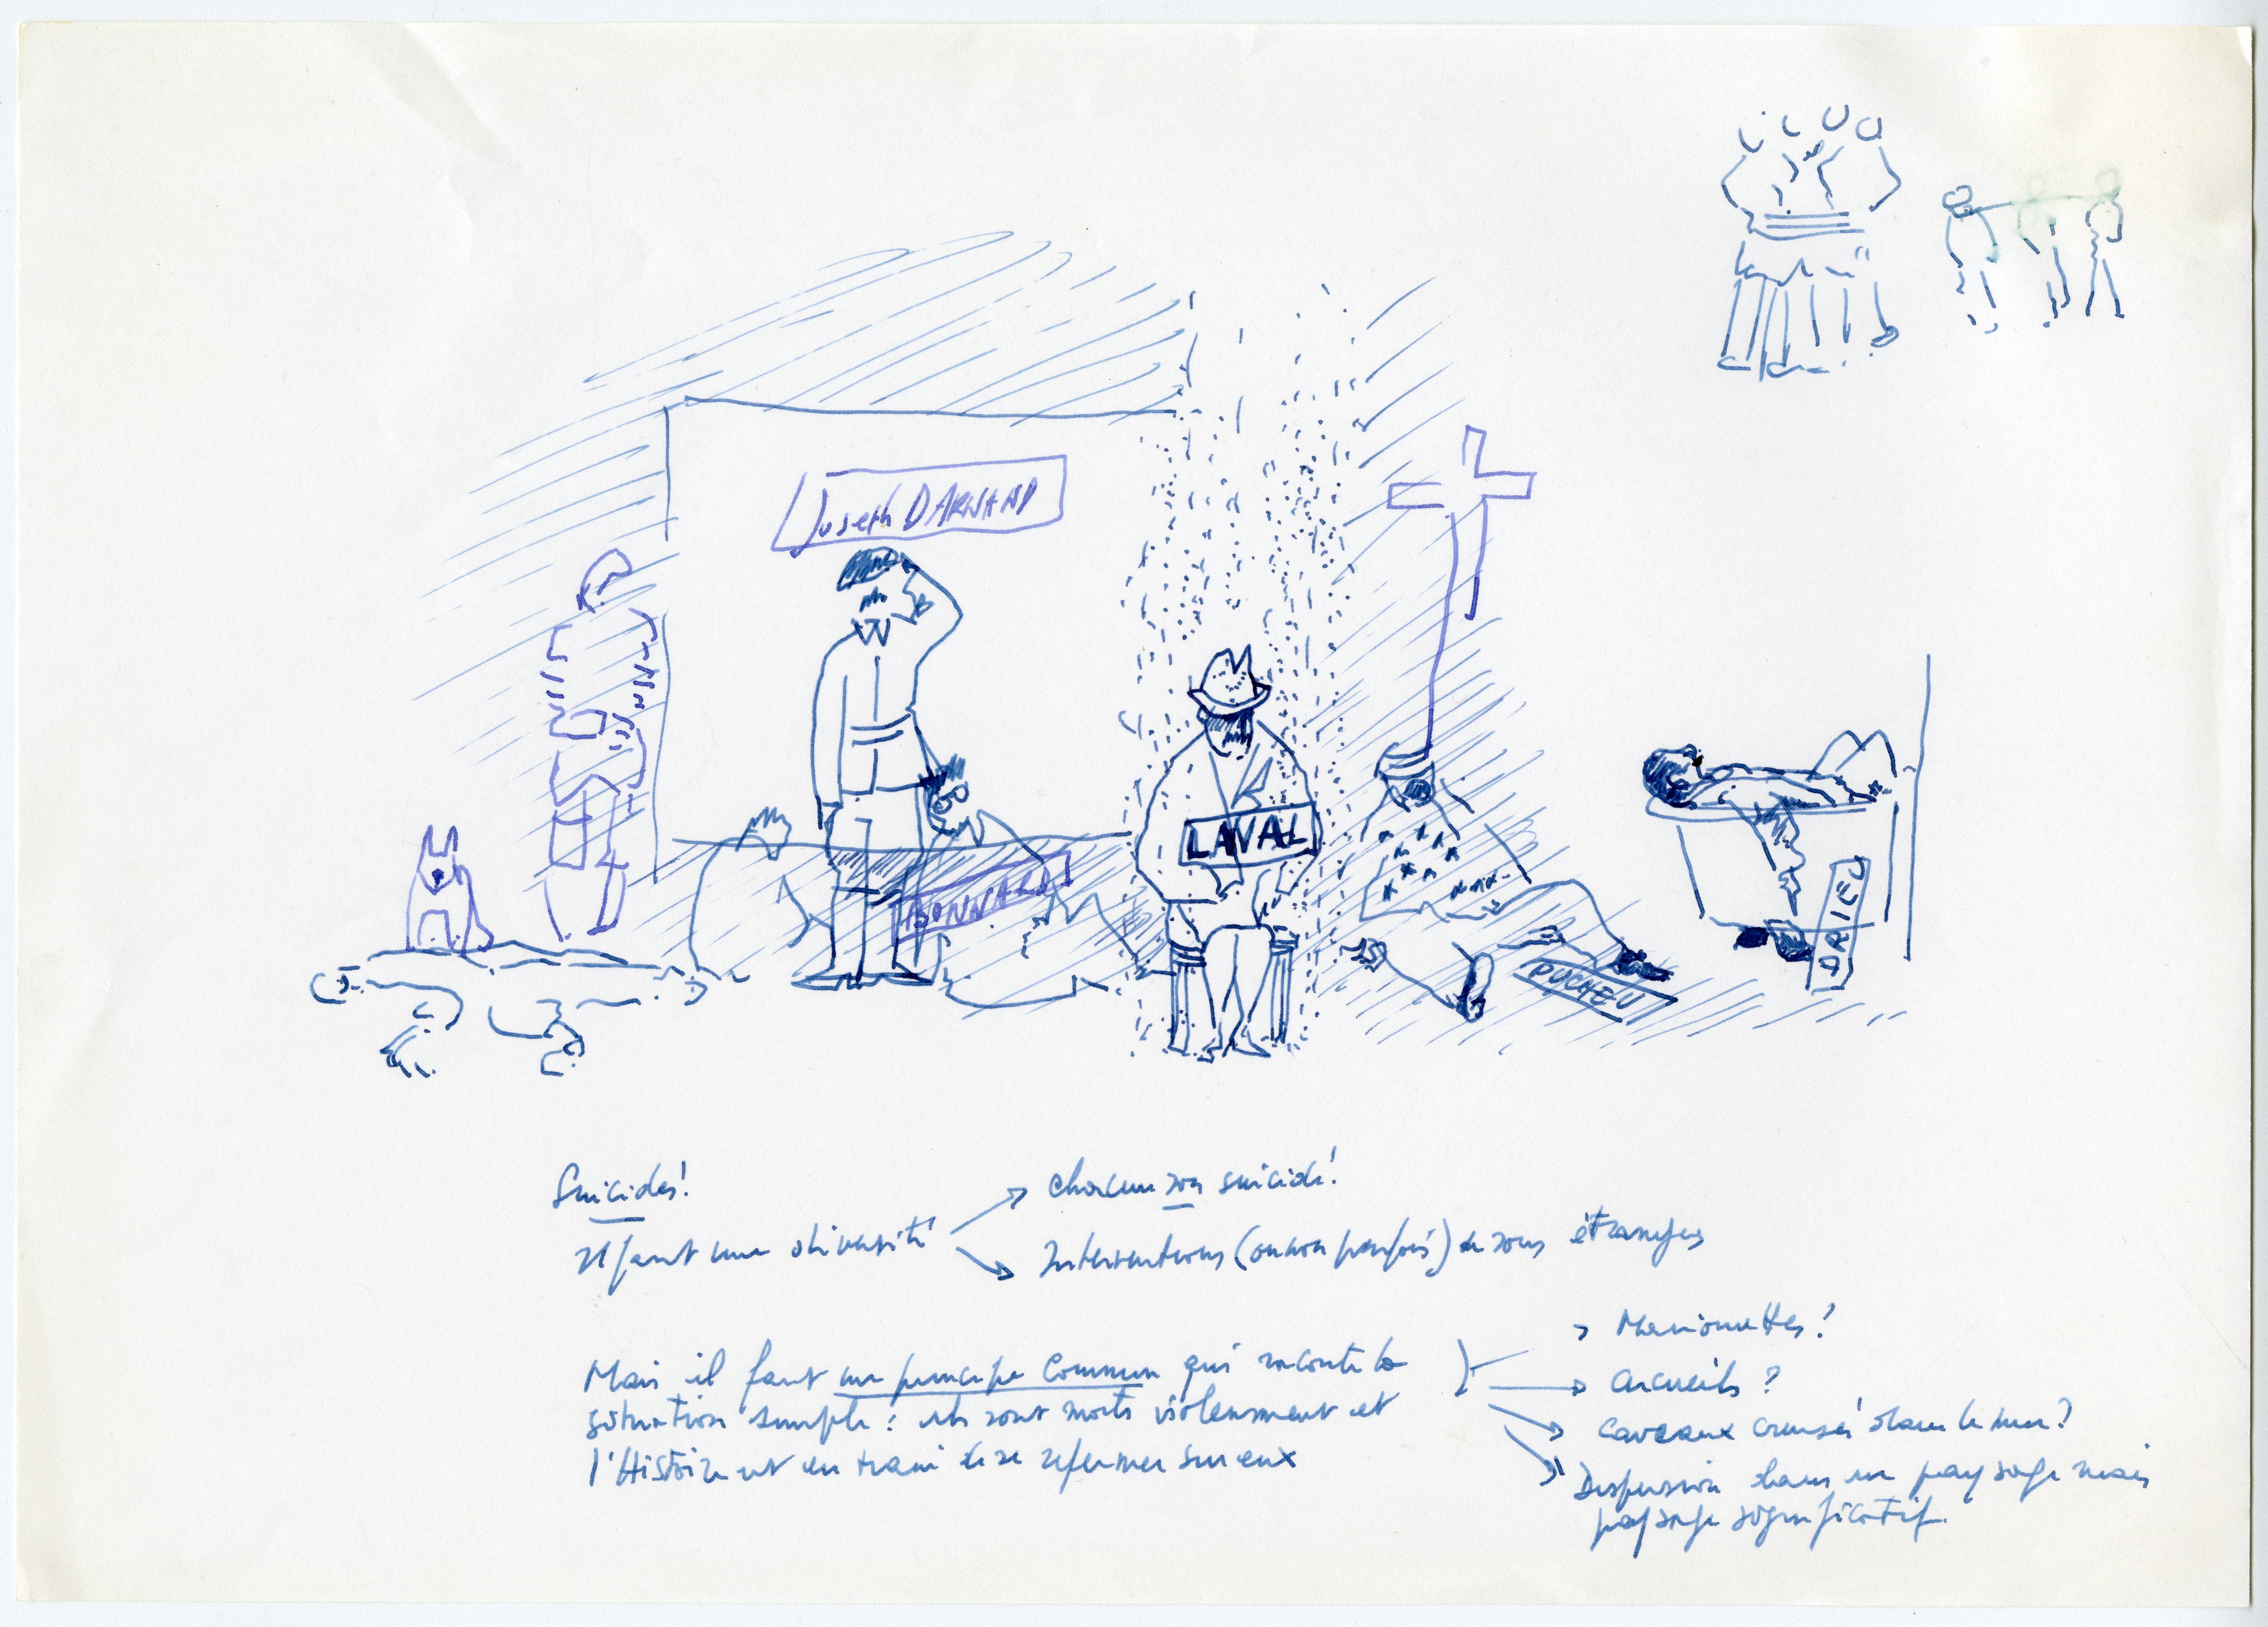 Joseph DARNAND
LAVAL
BONNARD
DRIEU
PUCHEU
Suicides!
chacun son suicide!
Il faut une diversité
Interventions (ou non parfois) de sons étranges
Marionnettes?
Mais il faut un principe commun qui raconte la
cercueils?
situation simple: ils sont morts violemment et
caveaux creusés dans le mur?
l'Histoire est en train de se refermer sur eux
Dispersion dans un paysage mais
paysage significatif.